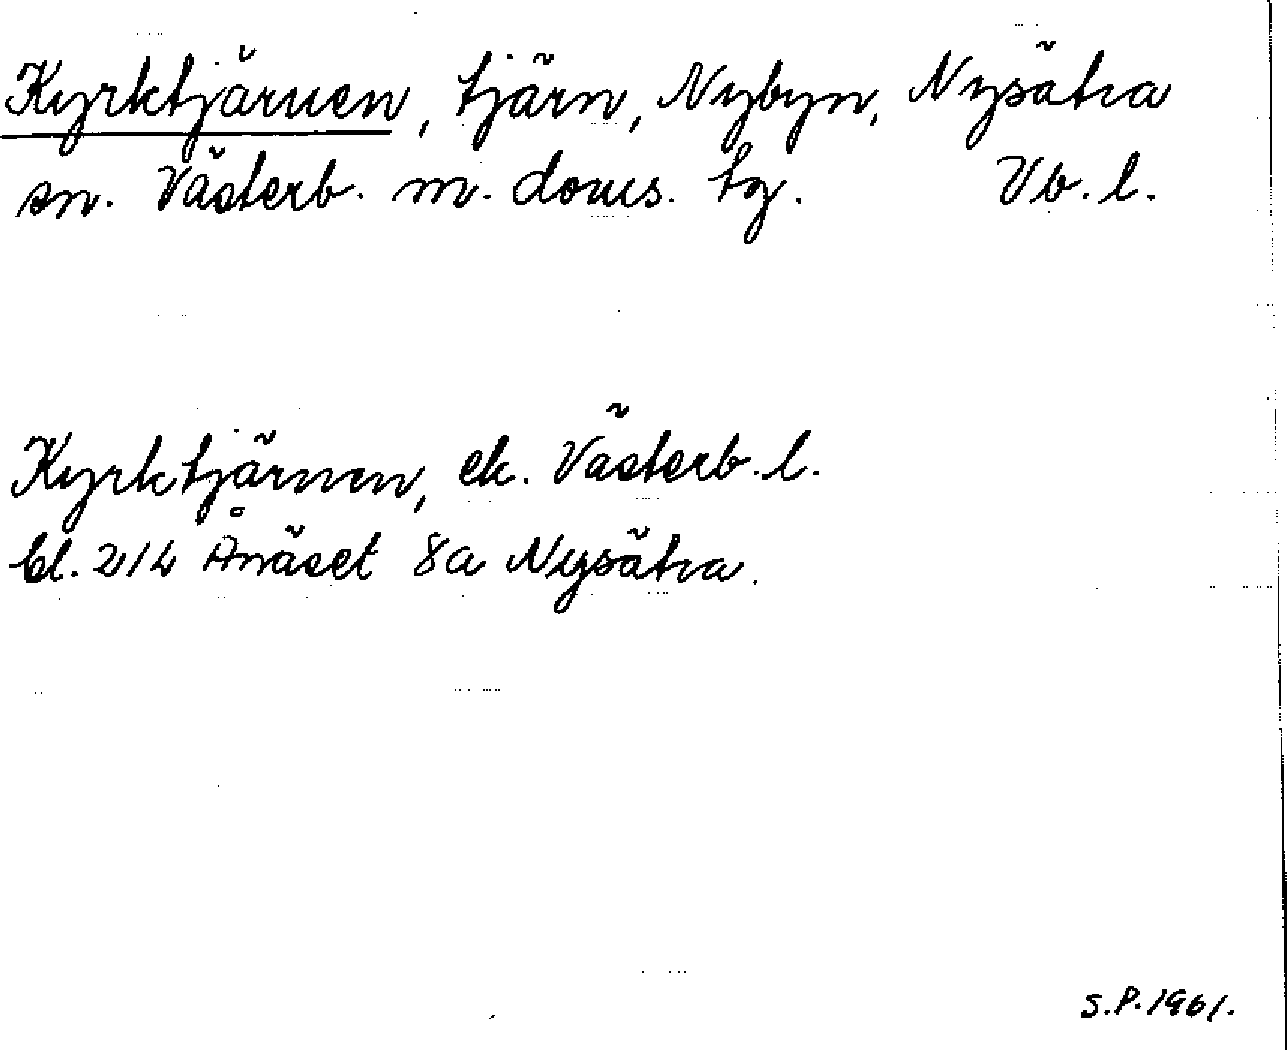 Kyrktjärnen, tjärn, Nybyn, Nysätra
sn. Västerb. m. doms. tg. Vb. l.
Kyrktjärnen, ek. Västerb. l.
bl. 214 Ånäset 8a Nysätra.
S.P. 1961.